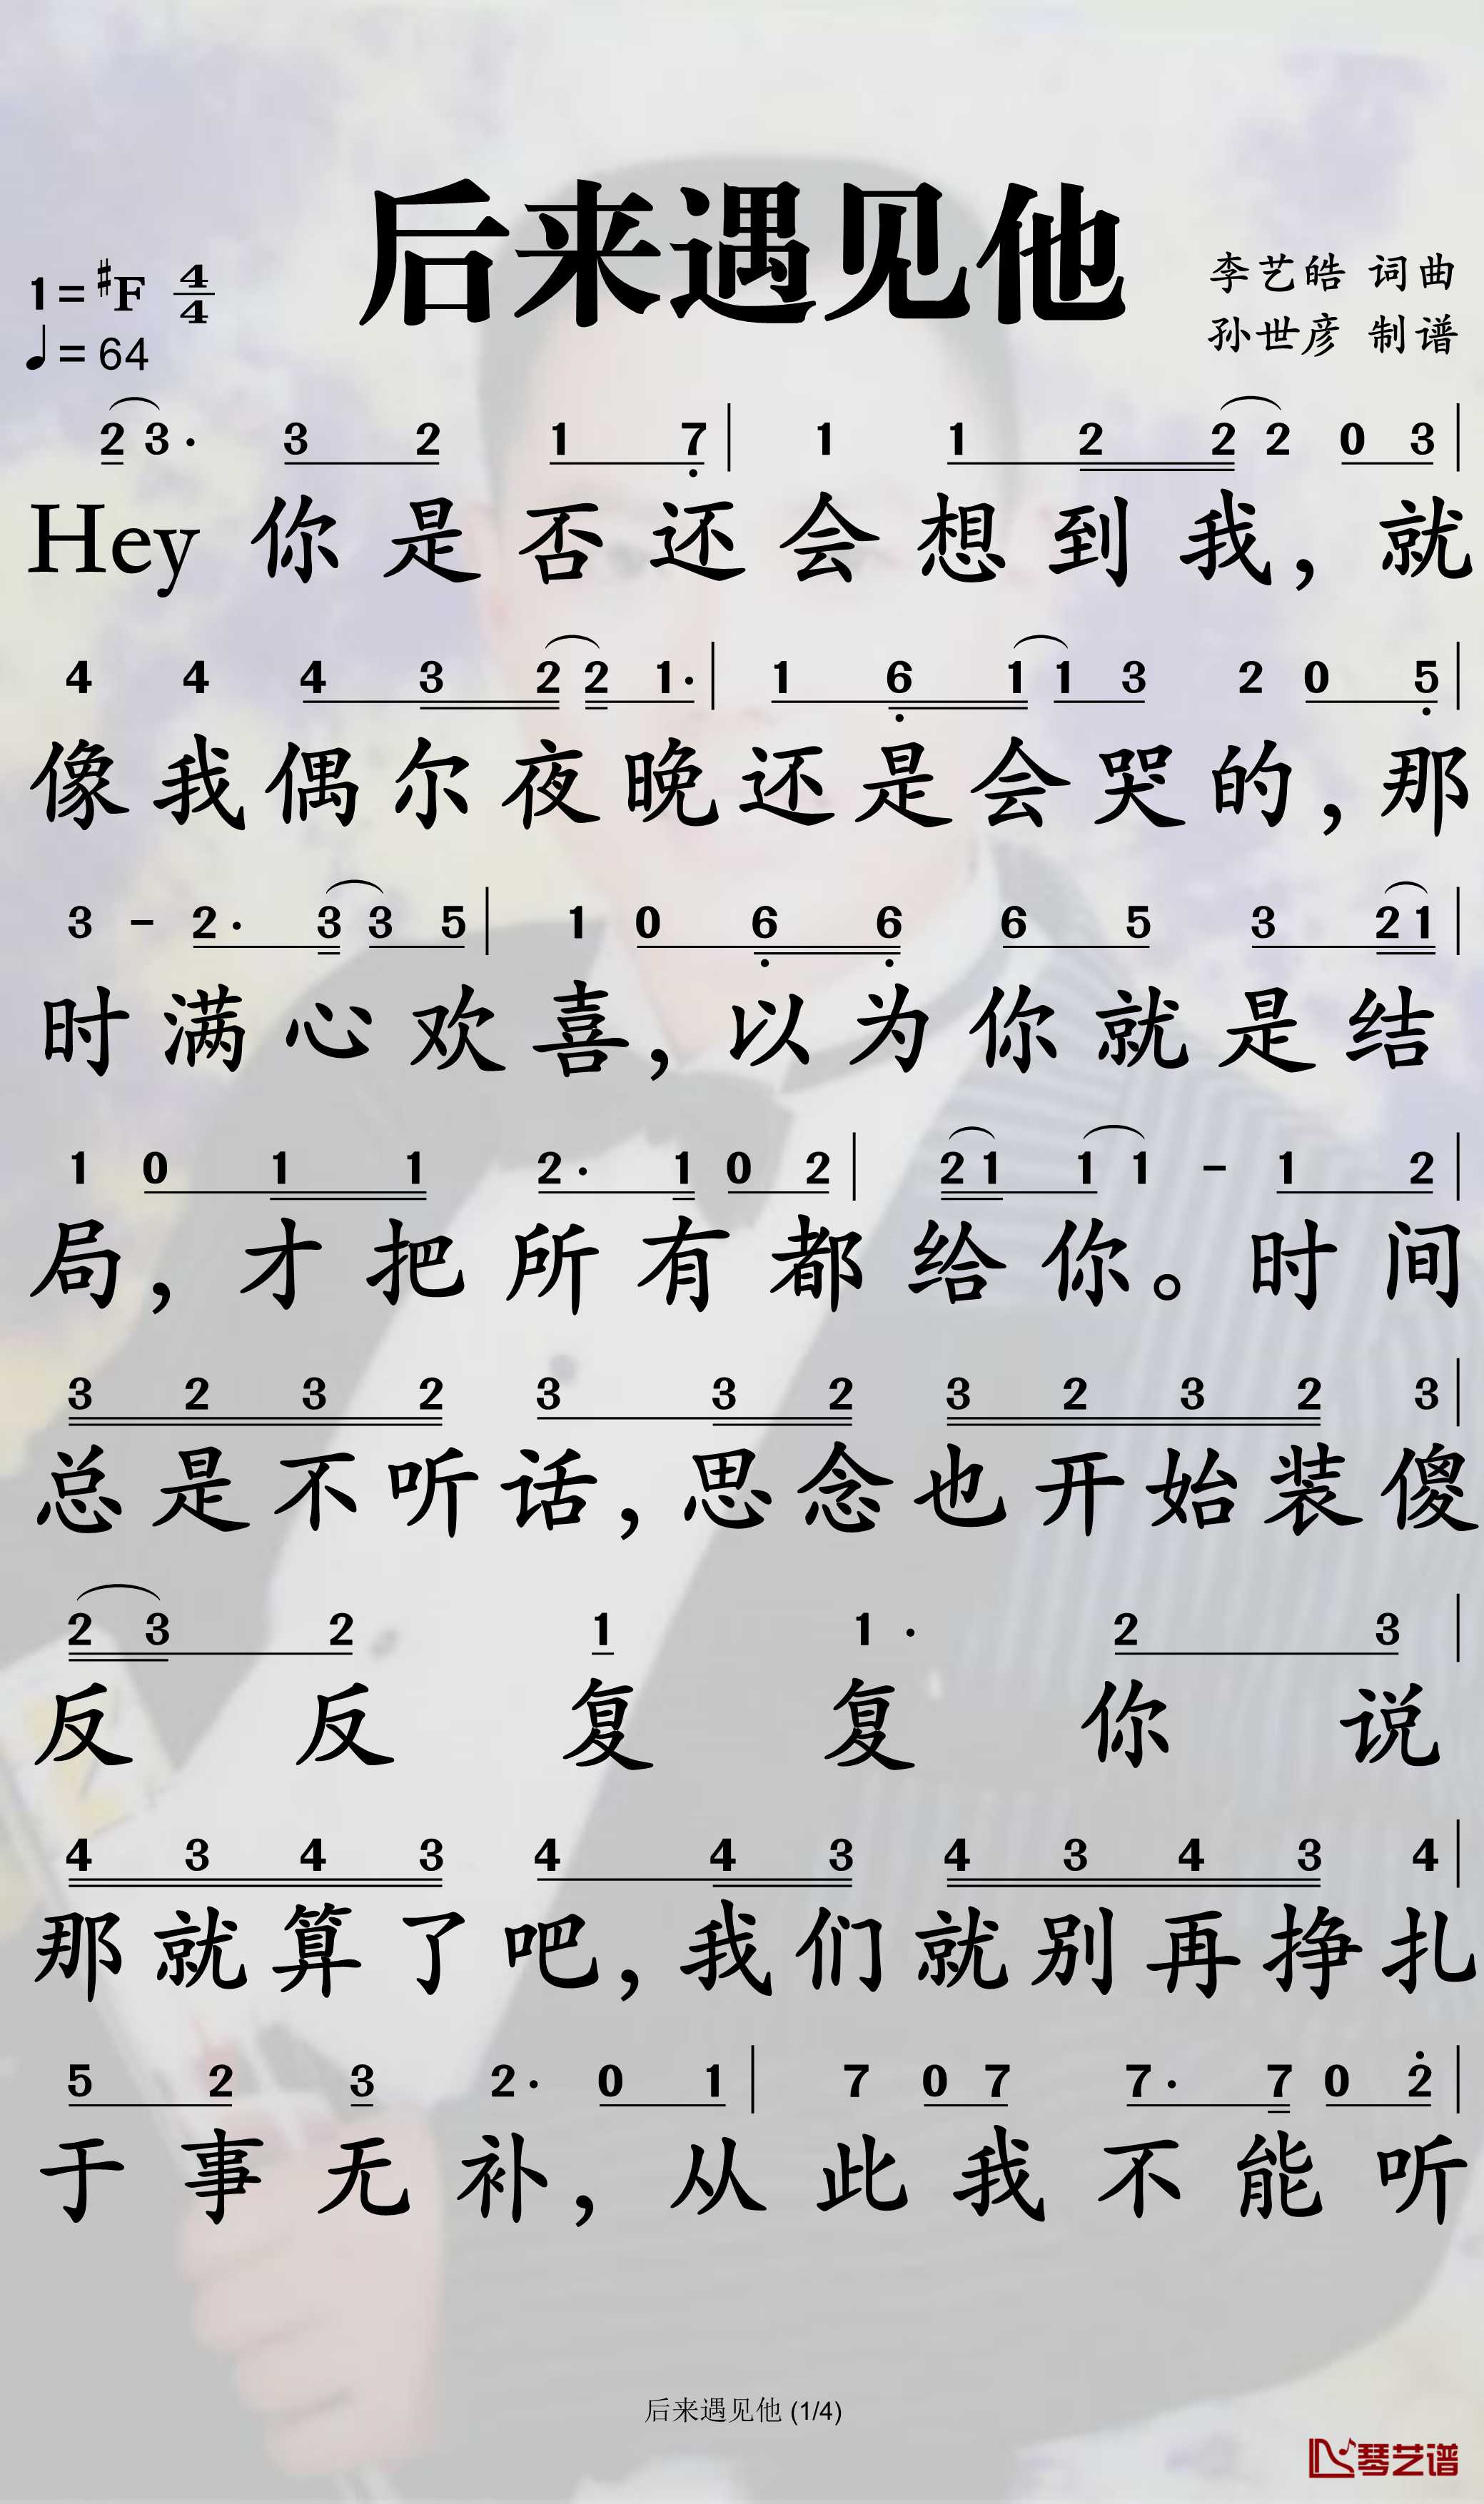 后来遇见他
1=♯F 4/4
♩=64
李艺皓 词曲
孙世彦 制谱
2 3· 3 2 1 7̣ | 1 1 2 2 2 0 3 |
Hey 你是否还会想到我，就
4 4 4 3 2 2 1· | 1 6̣ 1 1 3 2 0 5̣ |
像我偶尔夜晚还是会哭的，那
3 - 2· 3 3 5 | 1 0 6̣ 6̣ 6 5 3 2 1 |
时满心欢喜，以为你就是结
1 0 1 1 2· 1 0 2 | 2 1 1 1 - 1 2 |
局，才把所有都给你。时间
3 2 3 2 3 3 2 3 2 3 2 3 |
总是不听话，思念也开始装傻
2 3 2 1 1· 2 3 |
反反复复你说
4 3 4 3 4 4 3 4 3 4 3 4 |
那就算了吧，我们就别再挣扎
5 2 3 2· 0 1 | 7 0 7 7· 7 0 2̇ |
于事无补，从此我不能听
后来遇见他 (1/4)
琴艺谱